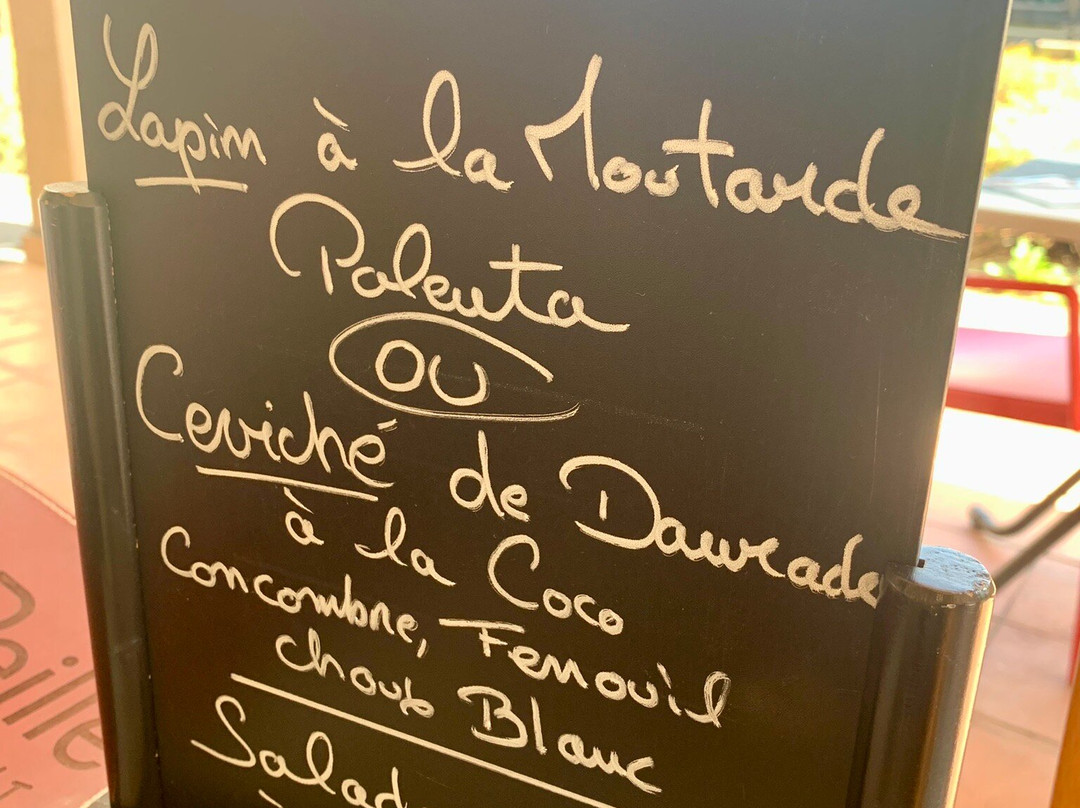 Lapin à la Moutarde
Polenta
OU
Ceviché de Dawrade
à la Coco
Concombre, Fenouil
choux Blanc
Salad